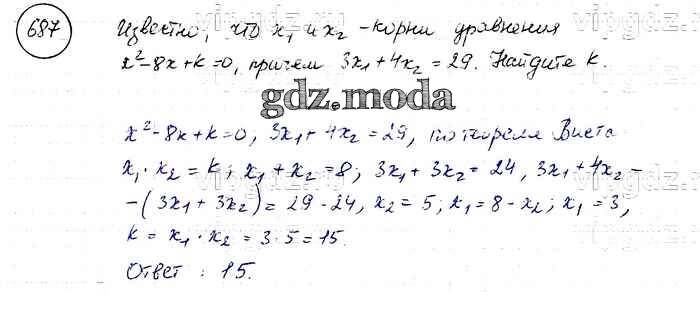 687 Известно, что x₁ и x₂ - корни уравнения
x² - 8x + k = 0, причем 3x₁ + 4x₂ = 29. Найдите k.
gdz.moda
x² - 8x + k = 0, 3x₁ + 4x₂ = 29, по теореме Виета
x₁ · x₂ = k; x₁ + x₂ = 8; 3x₁ + 3x₂ = 24, 3x₁ + 4x₂ -
- (3x₁ + 3x₂) = 29 - 24, x₂ = 5; x₁ = 8 - x₂; x₁ = 3,
k = x₁ · x₂ = 3 · 5 = 15.
Ответ: 15.